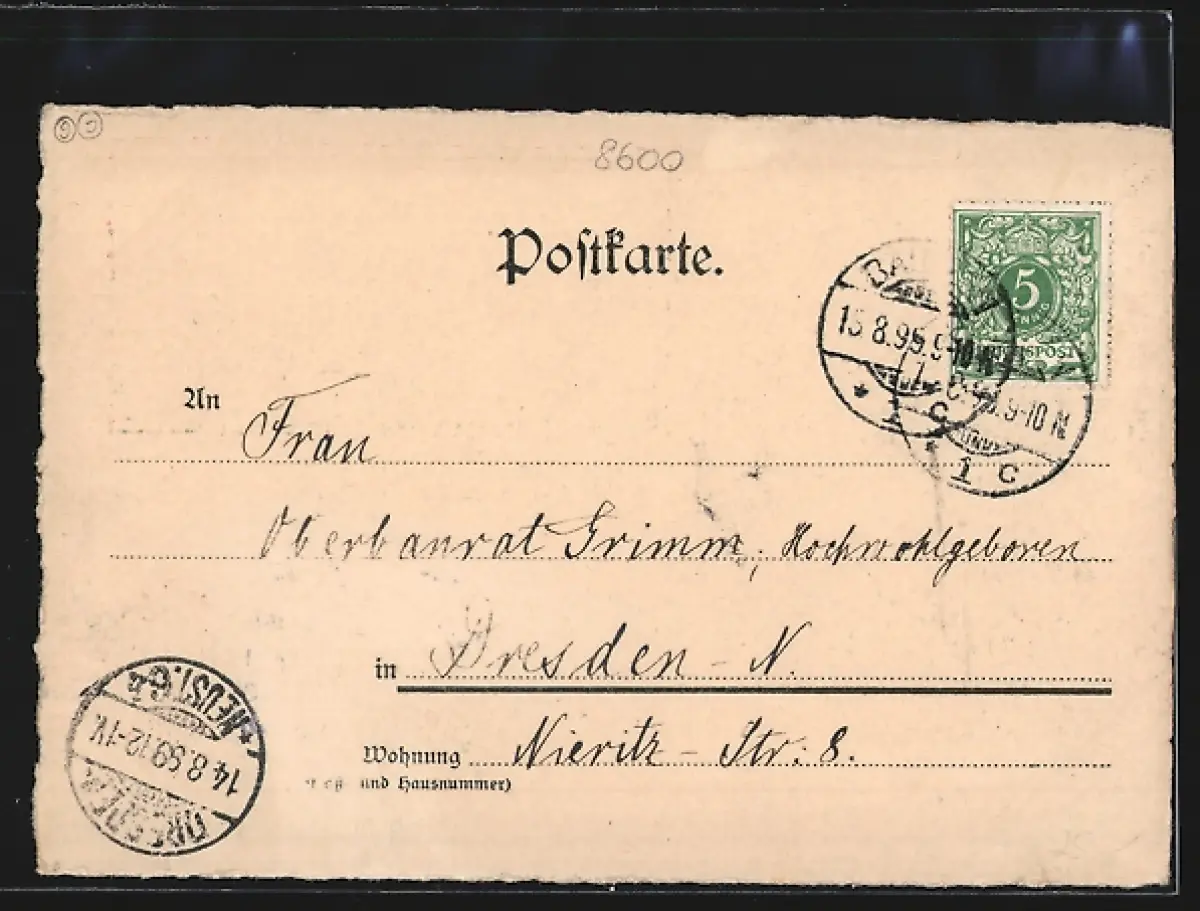 8600
Postkarte.
5
REICHSPOST
9-10 N
1 c
9-10 N
1 c
An Frau
Oberbaurat Grimm, Hochwohlgeboren
in Dresden - N.
Wohnung Nieritz - Str. 8.
und Hausnummer)
DRESDEN
14.8. 12-1V.
NEUST.